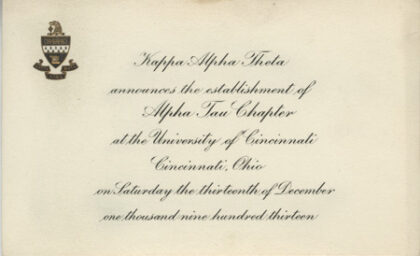 Kappa Alpha Theta
announces the establishment of
Alpha Tau Chapter
at the University of Cincinnati
Cincinnati, Ohio
on Saturday the thirteenth of December
one thousand nine hundred thirteen